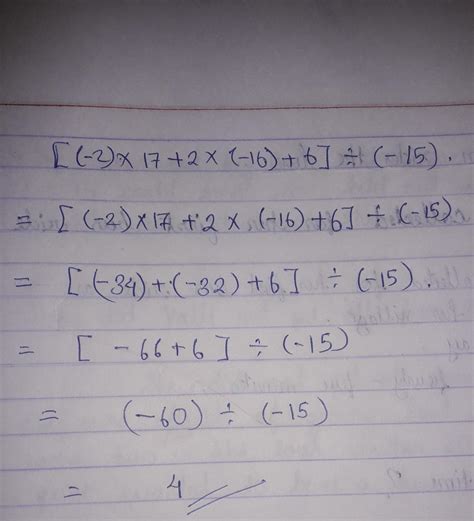 [(-2) × 17 + 2 × (-16) + 6] ÷ (-15).
= [(-2) × 17 + 2 × (-16) + 6] ÷ (-15)
= [(-34) + (-32) + 6] ÷ (-15).
= [ - 66 + 6 ] ÷ (-15)
= (-60) ÷ (-15)
= 4